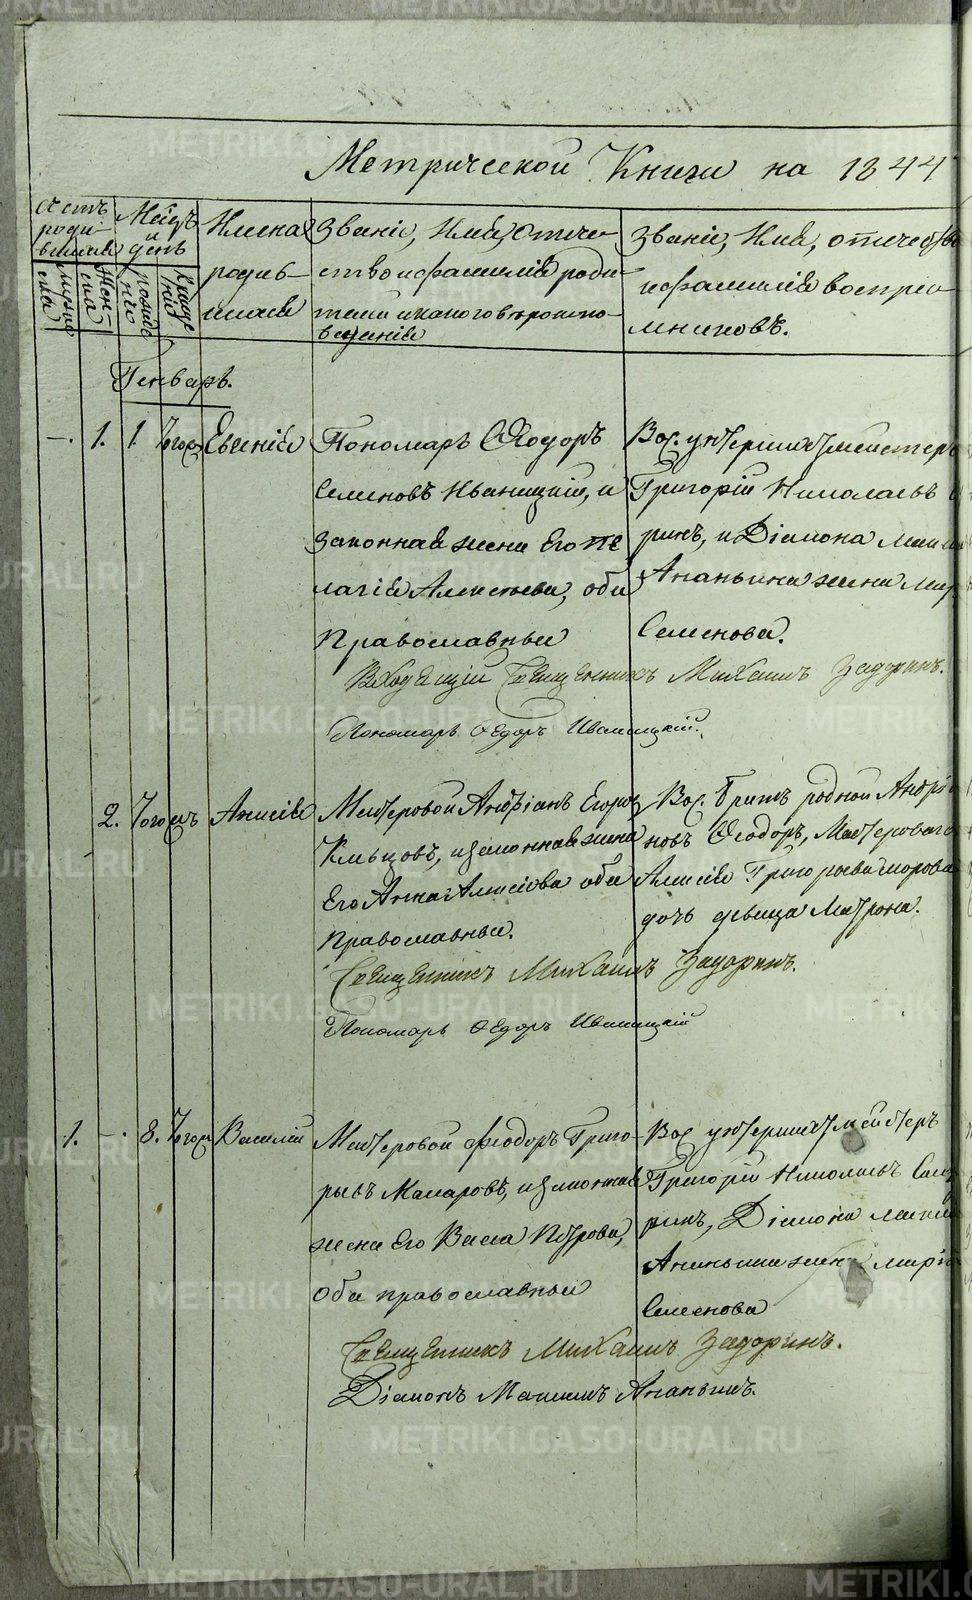 METRIKI.GASO-URAL.RU
Метрической Книги на 1844
Счетъ родившихся
Мѣсяцъ и день
Имена родившихся
Званіе, Имя, отечество и фамилія родителей и какого вѣроисповеданія
Званіе, Имя, отчество и фамилія воспреемниковъ.
мужеска
женска
рожденія
крещенія
Генварь.
–. 1. 1. Евгенія
Пономарь Ѳеодоръ
Семеновъ Иваницкій, и
законная жена Его Пе
лагія Алексѣева, оба
Православные
Вос. унтершихтмейстеръ
Григорій Николаевъ
ринъ, и Діакона
Ананьина жена
Семенова.
Входящій Священникъ Михаилъ Задоринъ.
Пономарь Ѳедоръ Иваницкій.
2.
Анисія
Мастеровой Андріанъ Егоров
Кльцовъ, и законная жена
Его Анна Алексіева оба
Православные.
Вос. братъ родной Андріа
новъ Ѳеодоръ, Мастероваго
Алексія Григорьева
дочь девица Матрона.
Священникъ Михаилъ Задоринъ.
Пономарь Ѳедоръ Иваницкій
1. –. 8. Василій
Мастеровой Ѳеодоръ Григо
рьевъ Макаровъ, и законная
жена Его Васса Петрова,
оба православные
Вос унтершихтмейстеръ
Григорій Николаевъ
ринъ, Діакона
Ананьина жена Марія
Семенова
Священникъ Михаилъ Задоринъ.
Діаконъ Максимъ Ананьинъ.